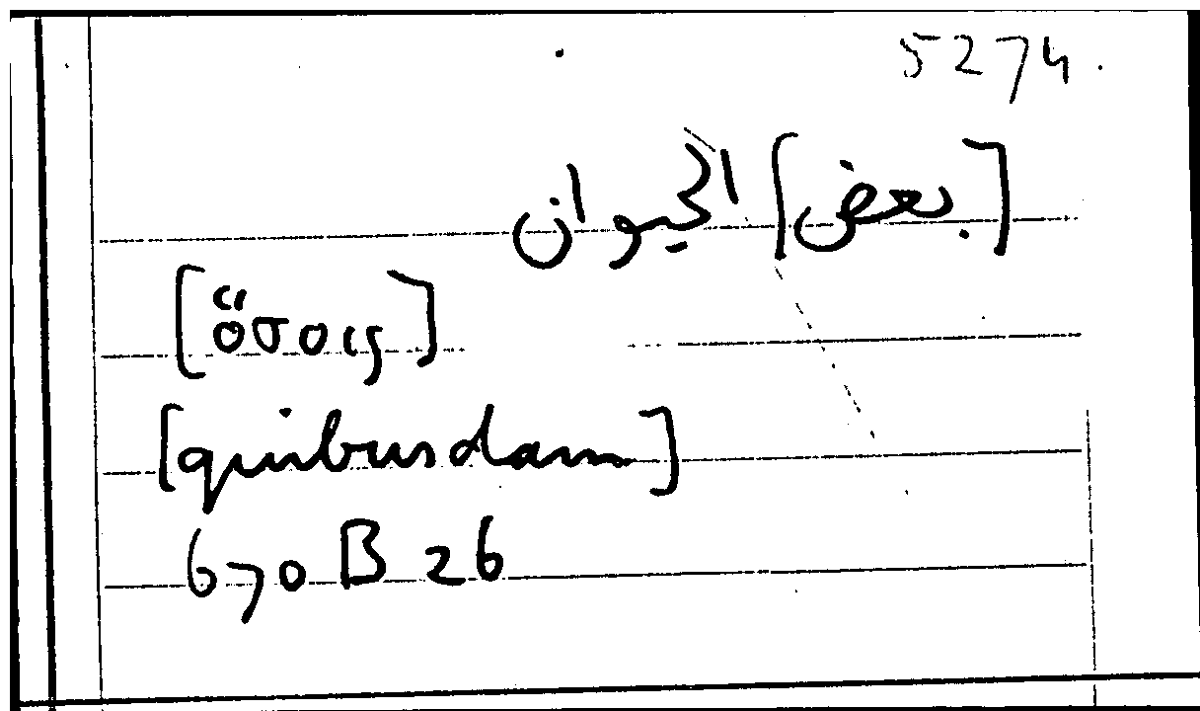 5274.
[بعض] الحيوان
[ὅσοις]
[quibusdam]
670 B 26